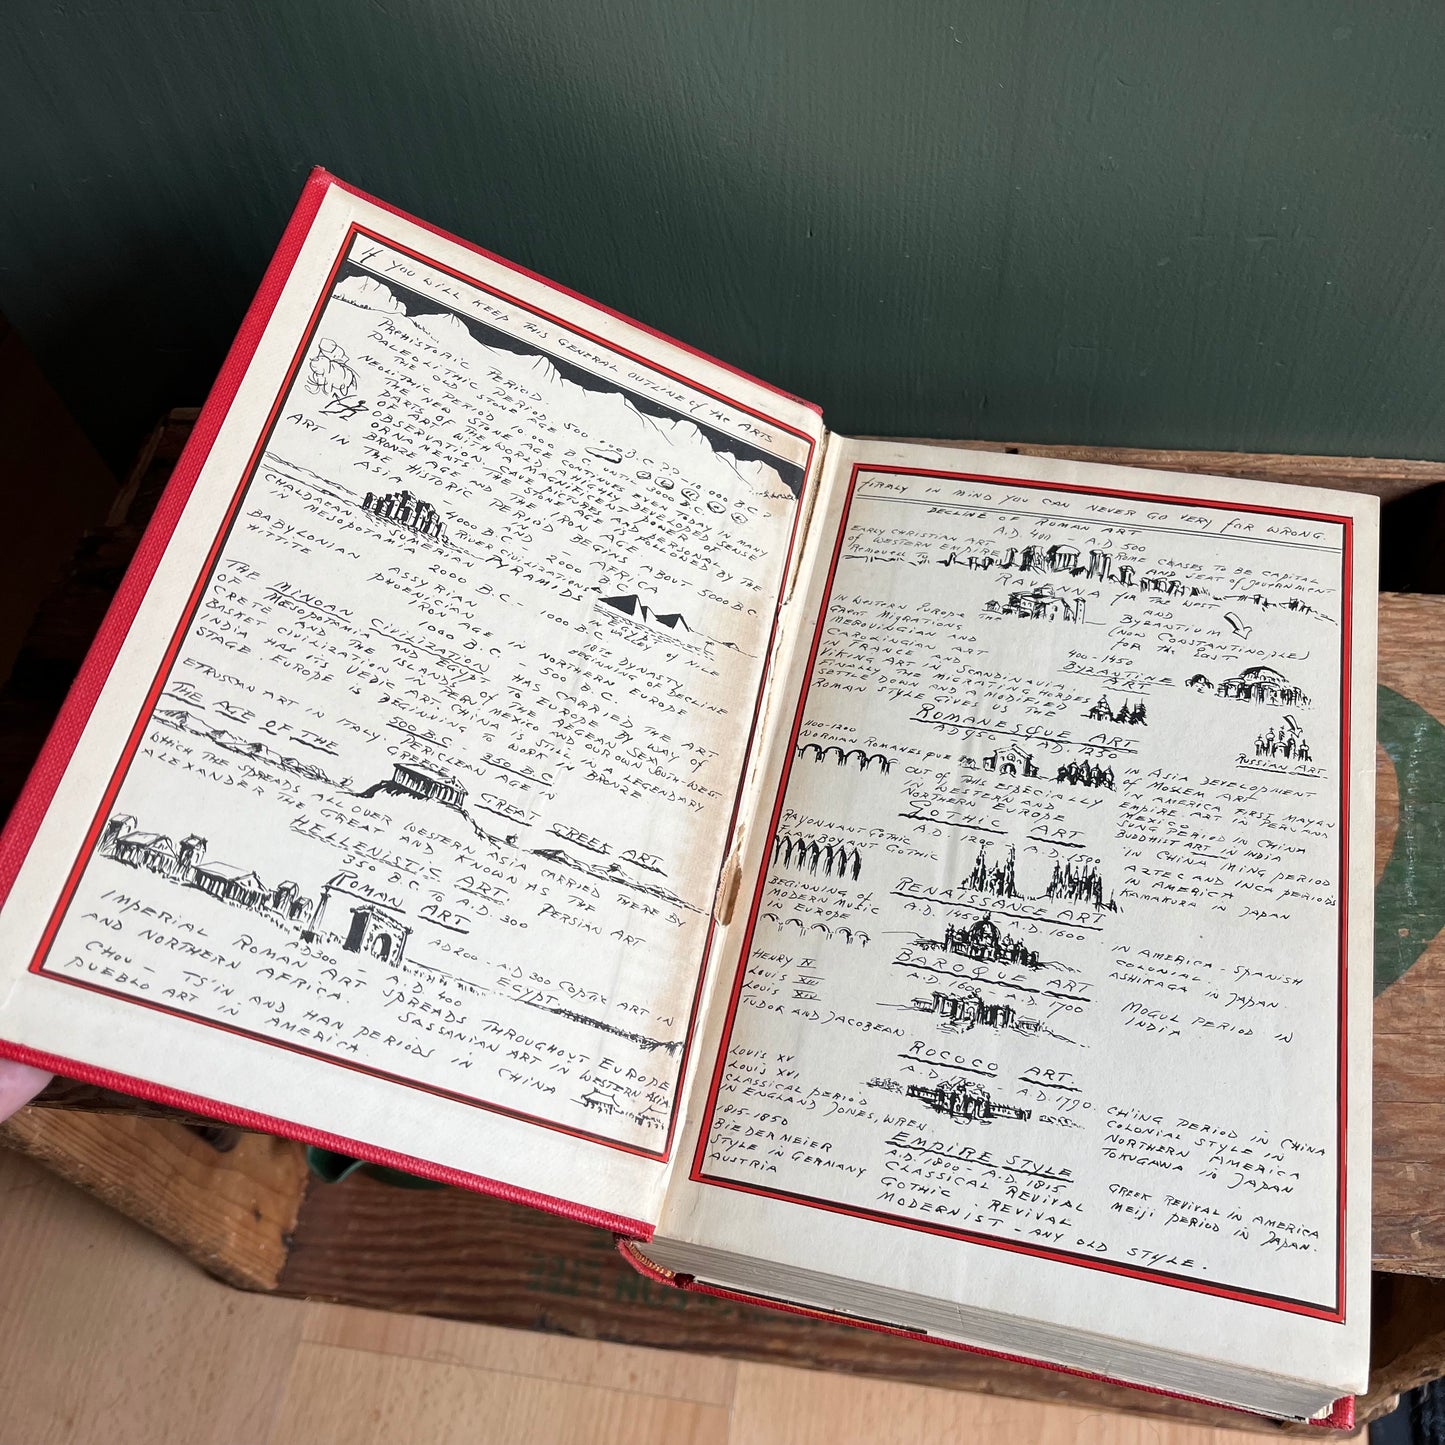 If YOU WILL KEEP THIS GENERAL OUTLINE of the ARTS
PREHISTORIC PERIOD
PALEOLITHIC PERIOD 500 000 B.C ?? - 10 000 B C ?
THE OLD STONE AGE
NEOLITHIC PERIOD 10.000 B C UNTIL 5000 B.C
THE NEW STONE AGE CONTINUES EVEN TODAY IN MANY
PARTS OF THE WORLD. A HIGHLY DEVELOPED SENSE
OF ART WITH A MAGNIFICENT POWER OF
OBSERVATION - CAVE PICTURES AND PERSONAL
ORNAMENTS - THE STONE AGE IS FOLLOWED BY THE
BRONZE AGE AND THE IRON AGE
ART IN THE HISTORIC PERIOD BEGINS ABOUT 5000 B C
ASIA AND AFRICA
4000 B.C - 2000 B C
RIVER CIVILIZATIONS
CHALDEAN SUMERIAN PYRAMIDS
IN MESOPOTAMIA EGYPT
IN VALLEY of NILE
BABYLONIAN 2000 B.C - 1000 B.C 18TH DYNASTY
HITTITE ASSYRIAN BEGINNING OF DECLINE
PHOENICIAN
IRON AGE IN NORTHERN EUROPE
1000 B.C - 500 B C
THE MINOAN CIVILIZATION HAS CARRIED THE ART
OF MESOPOTAMIA AND EGYPT TO EUROPE BY WAY OF
CRETE AND THE ISLANDS OF THE AEGEAN SEA.
BASKET CIVILIZATION IN PERU MEXICO AND OUR OWN SOUTH WEST.
INDIA HAS ITS VEDIC ART, CHINA IS STILL IN A LEGENDARY
STAGE. EUROPE IS BEGINNING TO WORK IN BRONZE
500 B.C - 350 B.C
ETRUSCAN ART IN ITALY. PERICLEAN AGE IN
GREECE
THE AGE OF THE GREAT GREEK ART
WHICH THE SPREADS ALL OVER WESTERN ASIA CARRIED THERE BY
ALEXANDER THE GREAT AND KNOWN AS THE
UNDER THE HELLENISTIC ART. PERSIAN ART
350 B.C. TO A.D. 300
ROMAN ART
AD 200 - A.D 300 COPTIC ART IN
EGYPT
AD 300 - A.D. 400
IMPERIAL ROMAN ART SPREADS THROUGHOUT EUROPE
AND NORTHERN AFRICA. SASSANIAN ART IN WESTERN ASIA.
CHOU - TS'IN - AND HAN PERIODS IN CHINA
PUEBLO ART IN AMERICA.
FIRMLY IN MIND YOU CAN NEVER GO VERY FAR WRONG.
DECLINE OF ROMAN ART
A.D. 400 - A.D 500
EARLY CHRISTIAN ART ROME CEASES TO BE CAPITAL
OF WESTERN EMPIRE AND SEAT of GOVERNMENT
REMOVED TO
RAVENNA for the WEST
AND
BYZANTIUM
(NOW CONSTANTINOPLE)
for the EAST
IN WESTERN EUROPE THE
GREAT MIGRATIONS
MEROVINGIAN AND
CAROLINGIAN ART
IN FRANCE AND
VIKING ART IN SCANDINAVIA
FINALLY THE MIGRATING HORDES
SETTLE DOWN AND A MODIFIED
ROMAN STYLE GIVES US THE
400-1450
BYZANTINE
ART
ROMANESQUE ART
AD 950 - AD. 1250
RUSSIAN ART
1100-1200
NORMAN ROMANESQUE
OUT OF THIS ESPECIALLY
IN WESTERN AND
NORTHERN EUROPE
IN ASIA DEVELOPMENT
OF MOSLEM ART
IN AMERICA FIRST MAYAN
EMPIRE. ART IN PERU AND
MEXICO
SUNG PERIOD IN CHINA
BUDDHIST ART IN INDIA
GOTHIC ART
A.D. 1200 - A.D. 1500
RAYONNANT GOTHIC
FLAMBOYANT GOTHIC
IN CHINA MING PERIOD
AZTEC AND INCA PERIODS
IN AMERICA
KAMAKURA IN JAPAN
RENAISSANCE ART
A.D. 1450 - A.D. 1600
BEGINNING OF
MODERN MUSIC
IN EUROPE
IN AMERICA - SPANISH
COLONIAL.
ASHIKAGA IN JAPAN.
BAROQUE ART
A.D. 1600 - A.D. 1700
HENRY IV
LOUIS XIII
LOUIS XIV
TUDOR AND JACOBEAN.
MOGUL PERIOD IN
INDIA
ROCOCO ART.
A.D. 1700 - A.D. 1790.
LOUIS XV
LOUIS XVI
CLASSICAL PERIOD
IN ENGLAND JONES, WREN.
CH'ING PERIOD IN CHINA
COLONIAL STYLE IN
NORTHERN AMERICA
TOKUGAWA IN JAPAN
EMPIRE STYLE
A.D. 1800 - A.D. 1815
1815-1850
BIEDERMEIER
STYLE IN GERMANY
AUSTRIA
CLASSICAL REVIVAL
GOTHIC - REVIVAL
MODERNIST - ANY OLD STYLE.
GREEK REVIVAL IN AMERICA
MEIJI PERIOD IN JAPAN.